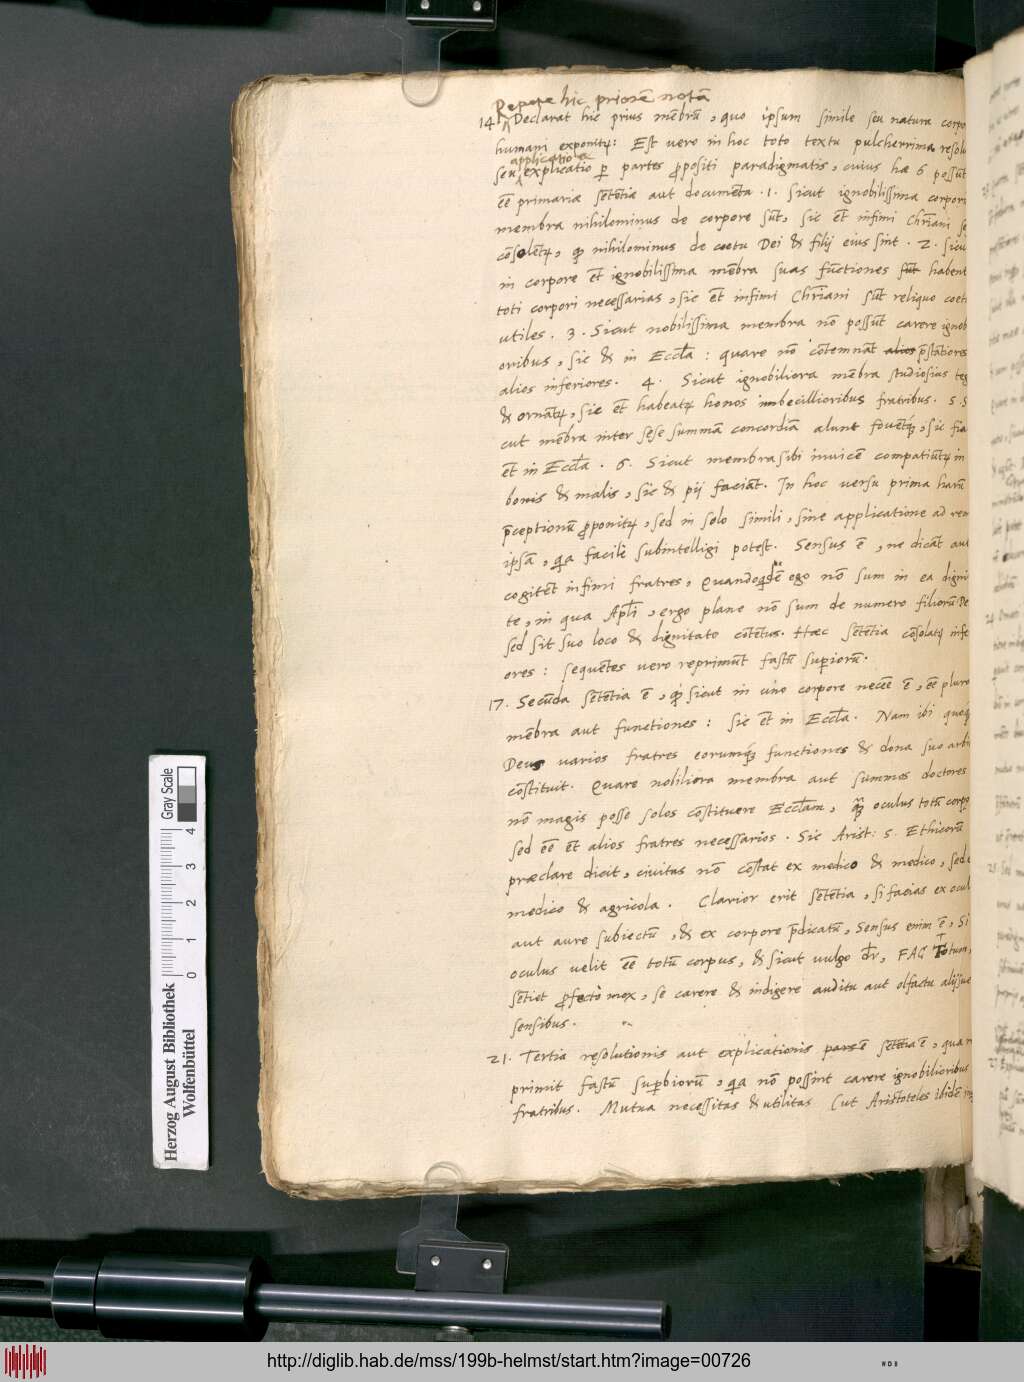 Repete hic priorē notā
14 Declarat hic prius mēbrū, quo ipsum simile seu natura corpo
humani exponitꝛ: Est vero in hoc toto textu pulcherrima resolu
applicatio &
seu explicatio ꝑ partes ꝓpositi paradigmatis, cuius hæ 6 possūt
eē primariæ sētētiæ aut documēta. 1. Sicut ignobilissima corpori
membra nihilominus de corpore sūt, sic ēt infimi Chr̄iani se
cōsolētꝛ, qꝫ nihilominus de coetu Dei & filij eius sint. 2. sicu
in corpore ēt ignobilissima mēbra suas fūctiones sūt habent
toti corpori necessarias, sic ēt infimi Chr̄iani sūt reliquo coetu
utiles. 3. Sicut nobilissima membra nō possūt carere ignob
oribus, sic & in Eccl̄a: quare nō cōtemnāt alios p̄stātiores
alios inferiores. 4. Sicut ignobiliora mēbra studiosius teg
& ornātꝛ, sic ēt habeatꝛ honos imbecillioribus fratribus. 5 S
cut mēbra inter sese summā concordiā alunt fovētqꝫ, sic fia
ēt in Eccl̄a. 6. Sicut membra sibi invicē compatiūtꝛ in
bonis & malis, sic & pij faciāt. In hoc versu prima harū
p̄ceptionū ꝓponitꝛ, sed in solo simili, sine applicatione ad rem
ipsā, qa facile subintelligi potest. Sensus ē, ne dicāt aut
cogitēt infimi fratres, Quandoqdē ego nō sum in ea digni
te, in qua Apl̄i, ergo plane nō sum de numero filiorū De
sed sit suo loco & dignitate cōtētus. Hæc sētētia cōsolatꝛ infe
ores: sequētes vero reprimūt fastū suꝑiorū.
17. Secūda sētētia ē, qꝫ sicut in uno corpore necēe ē, eē plura
mēbra aut functiones: sic ēt in Eccl̄a. Nam ibi quoq
Deus varios fratres eorumqꝫ functiones & dona suo arbi
cōstituit. Quare nobiliora membra aut summos doctores
nō magis posse solos cōstituere Eccl̄am, qꝫ oculus totū corpo
sed eē ēt alios fratres necessarios. Sic Arist: 5. Ethicorū
præclare dicit, civitas nō cōstat ex medico & medico, sed e
medico & agricola. Clarior erit sētētia, si facias ex ocul
aut aure subiectū, & ex corpore p̄dicatū, Sensus enim ē, Si
oculus velit eē totū corpus, & sicut vulgo dr̄, FAC Totum,
sētiet ꝓfecto mox, se carere & indigere auditu aut olfactu alijsve
sensibus.
21. Tertia resolutionis aut explicationis pars ē sētētia ē, qua re
primit fastū suꝑbiorū, qa nō possint carere ignobilioribus
fratribus. Mutua necessitas & utilitas (ut Aristoteles ibidē
Herzog August Bibliothek
Wolfenbüttel
0 1 2 3 4
Gray Scale
http://diglib.hab.de/mss/199b-helmst/start.htm?image=00726